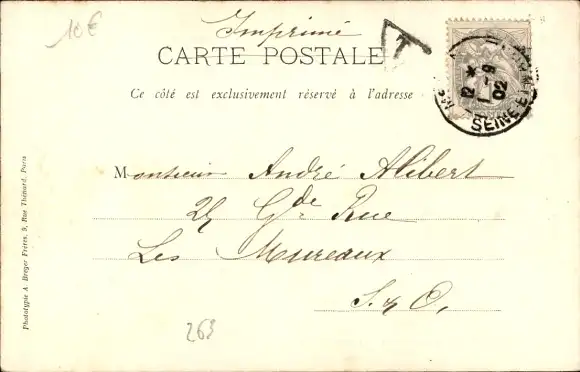 10€
Imprimé
CARTE POSTALE
T
Ce côté est exclusivement réservé à l'adresse
12 *
1 - 9
02
SEINE-ET-
Monsieur André Alibert
25 Gde Rue
Les Mureaux
S. & O.
263
Phototypie A. Breger Frères, 9, Rue Thénard, Paris